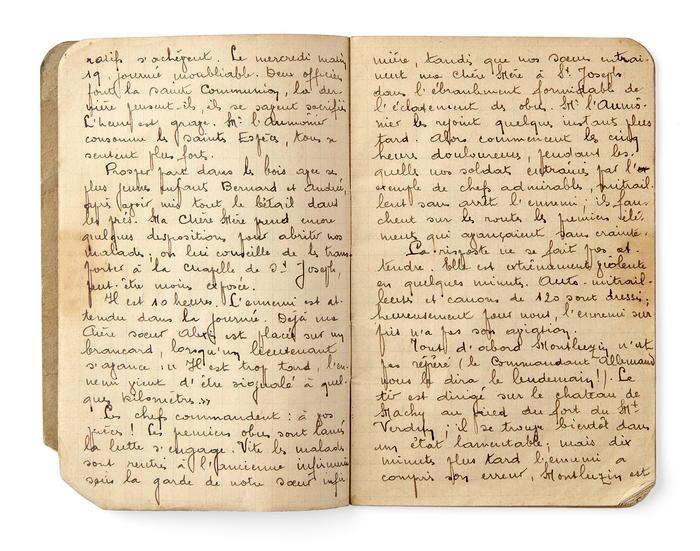 ratifs s'achèvent. Le mercredi matin
19, journée inoubliable. Deux officiers
font la sainte Communion, la der
nière pensent-ils, ils se savent sacrifiés
L'heure est grave. Mr l'aumônier
consomme les saintes Espèces, tous se
sentent plus forts.
Prosper part dans les bois avec ses
plus jeunes enfants Bernard et André,
après avoir mis tout le bétail dans
les prés. Ma Chère Mère prend encore
quelques dispositions pour abriter nos
malades; on lui conseille de les trans
porter à la chapelle de St Joseph,
peut-être moins exposée.
Il est 10 heures. L'ennemi est at-
tendu dans la journée. Déjà ma
Chère sœur est placée sur un
brancard, lorsqu'un lieutenant
s'avance : « Il est trop tard, l'en-
nemi vient d'être signalé à quel-
ques kilomètres.»
Les chefs commandent : à vos
pièces ! Les premiers obus sont lancés
la lutte s'engage. Vite les malades
sont rentrés à l'ancienne infirmerie
sous la garde de notre sœur infir
mière, tandis que nos sœurs entraî-
nent ma Chère Mère à St Joseph
dans l'ébranlement formidable de
l'éclatement des obus. Mr l'Aumô-
nier les rejoint quelques instants plus
tard. Alors commencent les cinq
heures douloureuses, pendant les-
quelles nos soldats entraînés par l'ex
emple de chefs admirables, mitrail-
lent sans arrêt l'ennemi; ils fau-
chent sur les routes les premiers élé-
ments qui avançaient sans crainte.
La risposte ne se fait pas at-
tendre. Elle est extrêmement violente
en quelques minutes. Auto-mitrail-
leuses et canons de 120 sont dressés;
heureusement pour nous, l'ennemi sur
pris n'a pas son aviation.
Tout d'abord Montluzin n'est
pas repéré (le Commandant Allemand
nous le dira le lendemain!). Le
tir est dirigé sur le chateau de
Machy au pied du fort du Mt
Verdun; il se trouve bientôt dans
un état lamentable; mais dix
minutes plus tard l'ennemi a
compris son erreur, Montluzin est